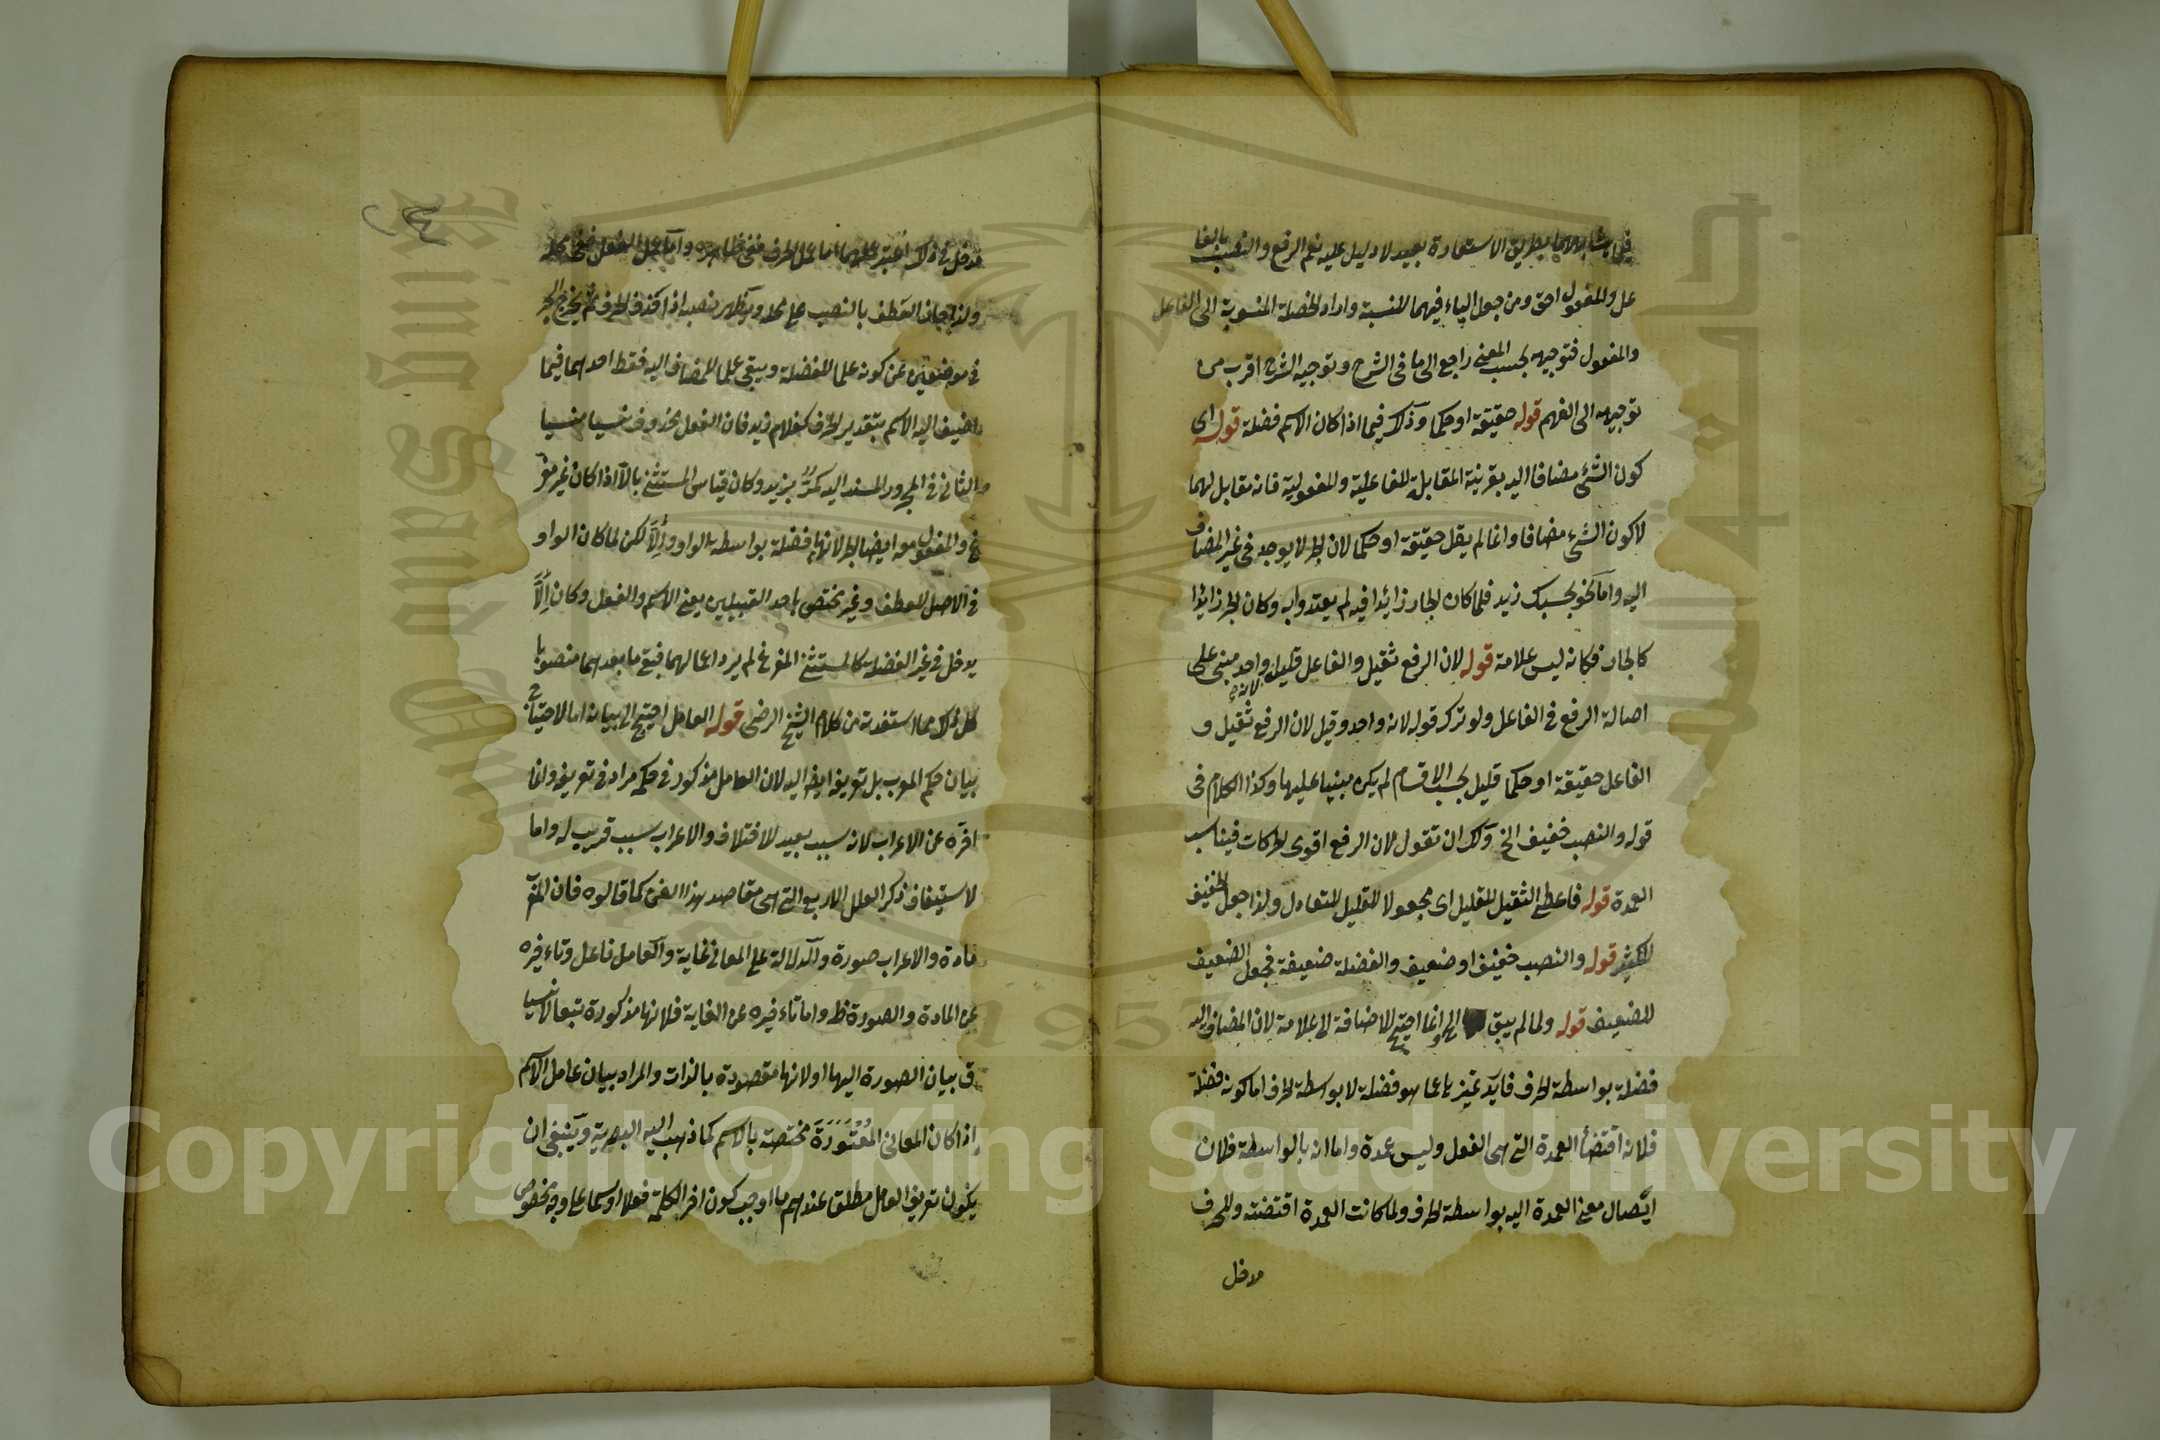 بطريق الاستعارة بعيد لا دليل عليه ثم الرفع والنصب بالفا
عل والمفعول احق ومن جعل الياء فيهما للنسبة واراد الخصلة المنسوبة الى الفاعل
والمفعول فتوجيهه بحسب المعنى راجع الى ما فى الشرح وتوجيه الشرح اقرب من
توجيهه الى الفهم قوله حقيقة او حكما وذلك فيما اذا كان الاسم فضلة قوله اى
كون الشئ مضافا اليه بقرينة المقابلة للفاعلية والمفعولية فانه مقابل لهما
لا كون الشئ مضافا وانما لم يقل حقيقة او حكما لان الجر لا يوجد فى غير المضاف
اليه واما نحو بحسبك زيد فلما كان الجار زائدا فيه لم يعتدوا به وكان الجر زائدا
كالجار فكانه ليس علامة قوله لان الرفع ثقيل والفاعل قليل لانه واحد مبنى على
اصالة الرفع فى الفاعل ولو ترك قوله لانه واحد وقيل لان الرفع ثقيل و
الفاعل حقيقة او حكما قليل بحسب الاقسام لم يكن مبنيا عليها وكذا الكلام فى
قوله والنصب خفيف الخ ولك ان تقول لان الرفع اقوى الحركات فيناسب
العمدة قوله فاعطى الثقيل للقليل اى مجعولا للقليل للتعادل ولذا جعل الخفيف
للكثير قوله والنصب خفيف او ضعيف والفضلة ضعيفة فجعل الضعيف
للضعيف قوله ولما لم يبق الخ وانما احتيج للاضافة الى علامة لان المضاف اليه
فضلة بواسطة الحرف فاريد تميزه عما هو فضلة لا بواسطة الحرف اما كونه فضلة
فلانه اقتضا العمدة التى هى الفعل وليس عمدة واما انه بالواسطة فلان
ايصال معنى العمدة اليه بواسطة الحرف ولما كانت العمدة اقتضته وللحرف
مدخل
مدخل فى ذلك اعتبر عملهما اما عمل الحرف ففى ظاهره واما عمل الفعل ففى محله
ولذا جاز العطف بالنصب على محله ويظهر نصبه اذا حذف الحرف ثم يخرج الجر
فى موضعين عن كونه علما للفضلة ويبقى علما للمضاف اليه فقط احدهما فيما
اضيف اليه الاسم بتقدير الحرف كغلام زيد فان الفعل محذوف نسيا منسيا
والثانى فى المجرور المسند اليه كمر بزيد وكان قياس المستثنى بالا اذا كان غير مفر
غ والمفعول معه ايضا الجر لانهما فضلة بواسطة الواو والا لكن لما كان الواو
فى الاصل للعطف وغير مختص باحد القبيلين يعنى الاسم والفعل وكان الا
يدخل فى غير الفضلة كالمستثنى المفرغ لم يرد اعمالهما فبقى ما بعدهما منصوبا
كل ذلك مما استفدته من كلام الشيخ الرضى قوله العامل احتيج الى بيانه اما لاحتياج
بيان حكم المعرب بل تعريفه ايضا اليه لان العامل مذكور فى حكمه مراد فى تعريفه وانما
اخره عن الاعراب لانه سبب بعيد للاختلاف والاعراب سبب قريب له واما
لاستيفاء ذكر العلل الاربع التى هى مقاصد هذا الفن كما قالوه فان المعر
مادة والاعراب صورة والدلالة على المعانى غاية والعامل فاعل وتاءخيره
عن المادة والصورة ظ واما تاءخيره عن الغاية فلانها مذكورة تبعا لانسيا
ق بيان الصورة اليها او لانها مقصودة بالذات والمراد بيان عامل الاسم
اذا كان المعانى المعتورة مختصة بالاسم كما ذهب اليه البصرية وينبغى ان
يكون تعريف العامل مطلقا عندهم ما اوجب كون اخر الكلمة فعلا او اسما على وجه مخصوص
Copyright © King Saud University
1957